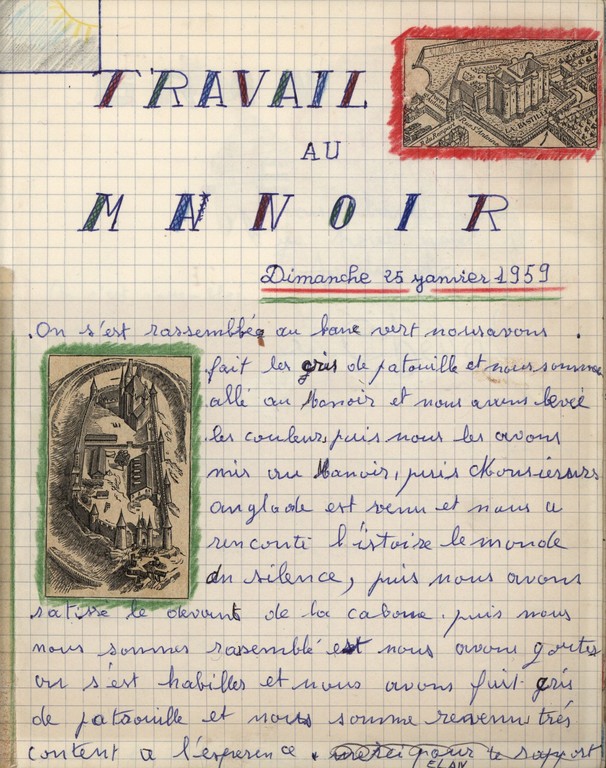 TRAVAIL
AU
MANOIR
LA BASTILLE
Dimanche 25 yanvier 1959
.On s'est rassemblée au banc vert nousavons .
fait les gris de patouille et nous somme
allé au Manoir et nous avons levée
les couleurs, puis nous les avons
mis au Manoir, puis Monsieurs
anglade est venu et nous a
renconté l'istoire le monde
du silence, puis nous avons
ratisse le devant de la cabane. puis nous
nous sommes rassemblé est nous avons goutes
on s'est habilles et nous avons fait gris
de patrouille et nous somme revenu très
content a l'esperence . merci pour le rapport
ELAN